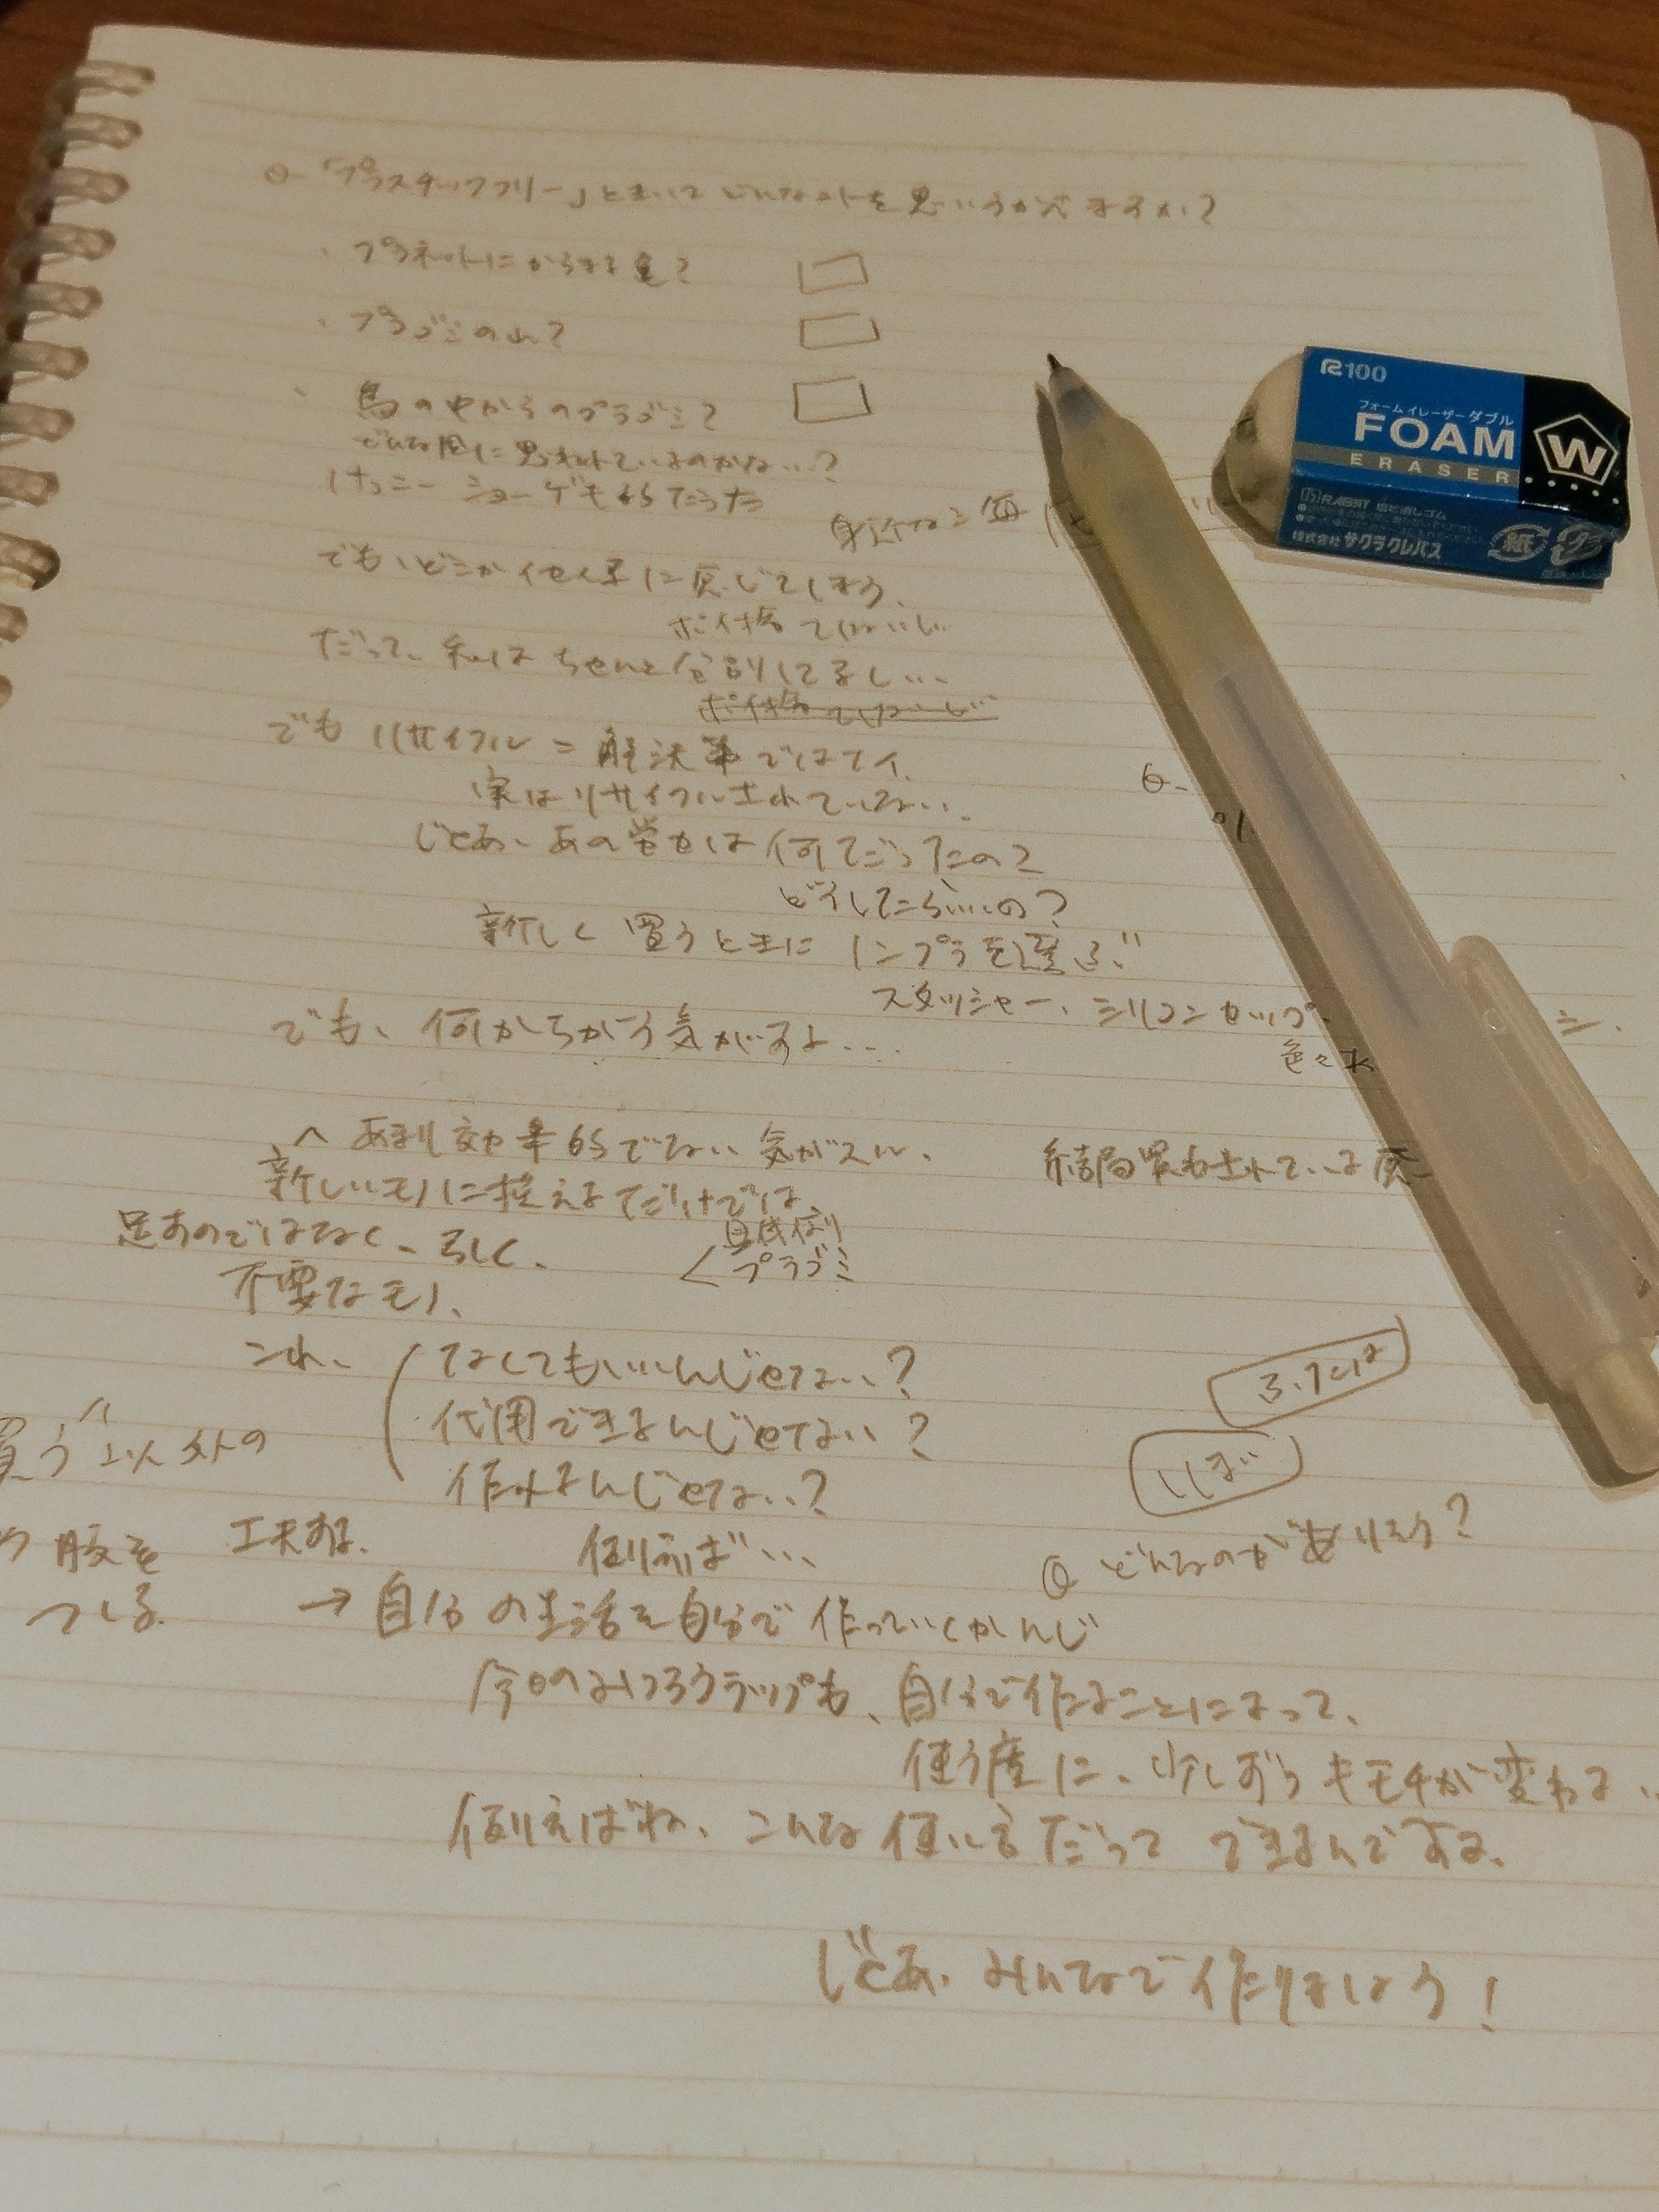 Q 「プラスチックフリー」ときいてどんなコトを思いうかべますか?
・プラネットにからまる亀?
・プラゴミの山?
・鳥の中からのプラゴミ?
どんな風に思われているのかな…?
けっこーショーゲキ的だった
身近な=毎
でも、どこか他人事に感じてしまう、
ポイ捨てしないし
だって、私はちゃんと分別してるし…
ポイ捨てしないし
でもリサイクル=解決策ではナイ、
実はリサイクルされていない、
じゃあ、あの労力は何だったの?
どうしたらいいの?
新しく買うときに
プラを選ぶ"
スタッシャー、シリコンカップ
色々
でも、何かちがう気がする…
あまり効率的でない気がスル、
結局
されている
新しいモノに控えるだけでは、
足すのではなく、引く、
具体例
<プラゴミ
不要なモノ、
これ、
なくてもいいんじゃない?
代用できるんじゃない?
作れるんじゃない?
買う"以外の
肢を
工夫する。
つくる
例えば…
Q どんなのがありそう?
→自分の生活を自分で作っていくかんじ
今日のみつろうラップも、自分で作ることによって、
使う度に、少しずつキモチが変わる、
例えばね、こんな使い方だってできるんですよ。
じゃあ、みんなで作りましょう!
R100
フォームイレーザーダブル
FOAM
ERASER
W
RABBIT 塩ビ消しゴム
株式会社サクラクレパス
紙
プラ